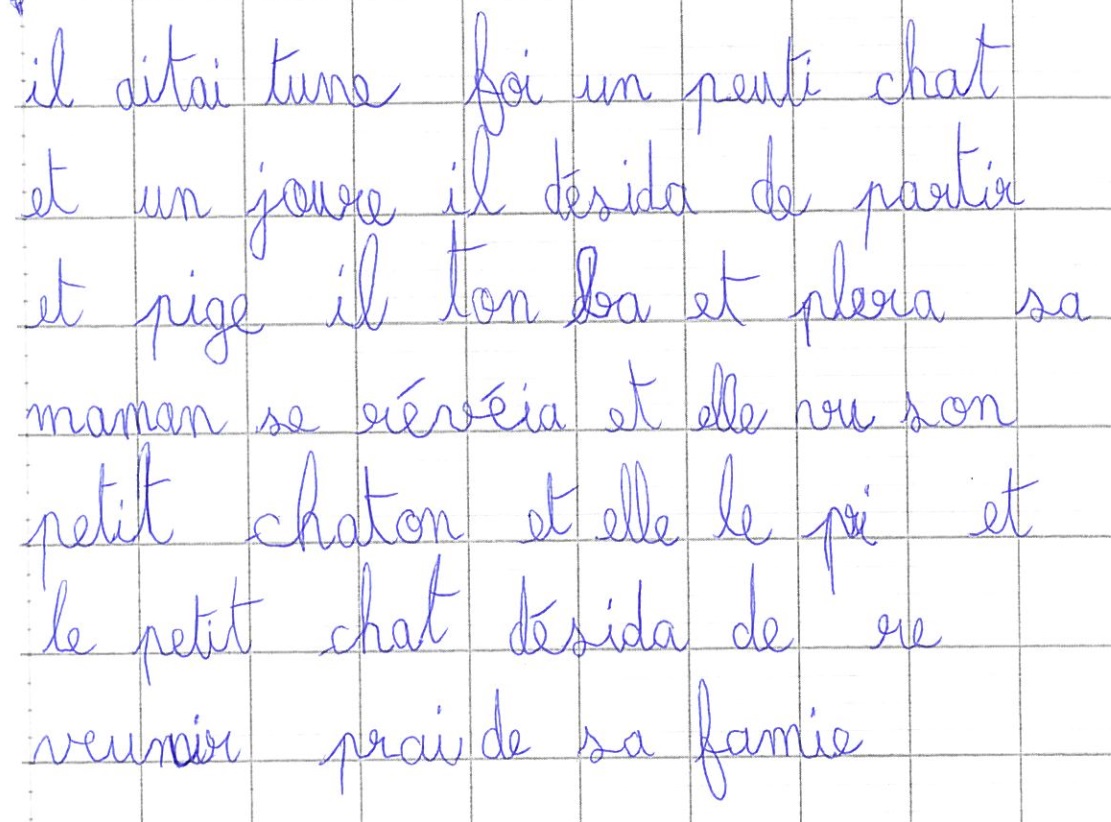 il aitai tune foi un peuti chat
et un joure il désida de partir
et pige il ton ba et plera sa
maman se révéia et elle vu son
petit chaton et elle le pri et
le petit chat désida de re
veunir prai de sa famie